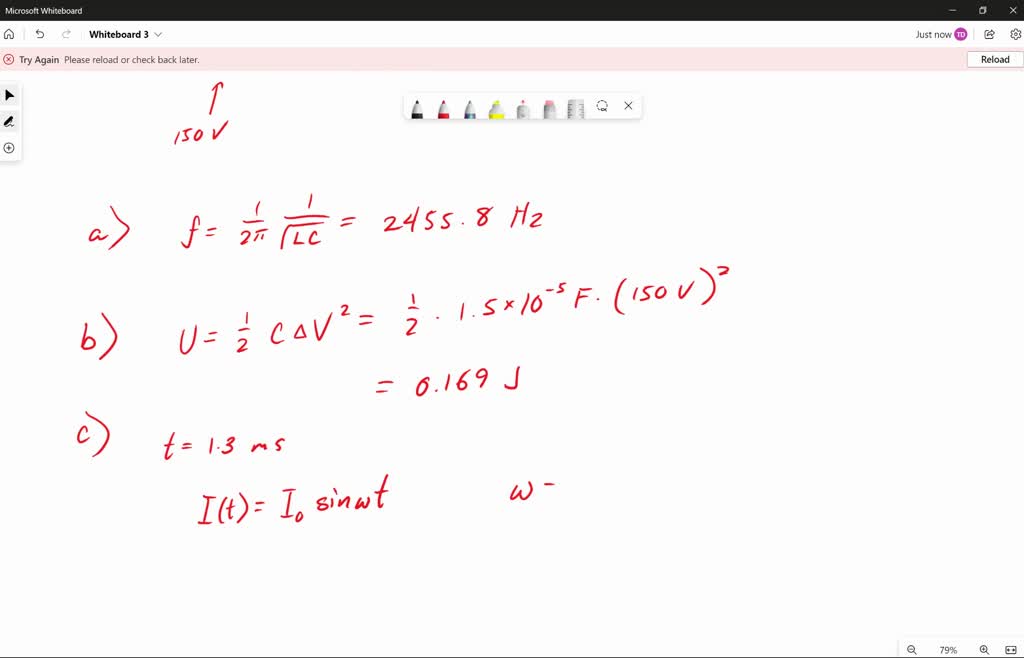 Microsoft Whiteboard
Whiteboard 3
Just now TD
Try Again Please reload or check back later.
Reload
150 V
a) f = 1/2π 1/√LC = 2455.8 Hz
b) U = 1/2 C ΔV² = 1/2 · 1.5 × 10⁻⁵ F · (150 V)²
= 0.169 J
c) t = 1.3 ms
I(t) = I₀ sin ωt ω =
79%